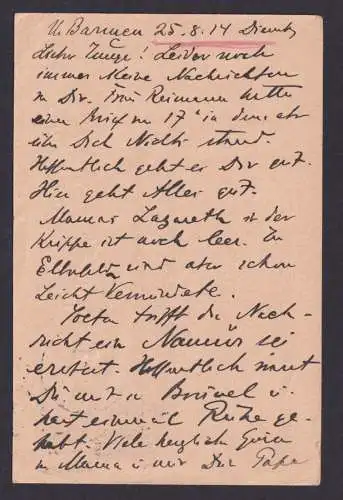 U. Barmen 25.8.14 Dienstag
Lieber Junge! Leider noch
immer keine Nachrichten
v. Dir. Frau Reimann hatte
einen Brief v. 17' in dem aber
über Dich Nichts stand.
Hoffentlich geht es Dir gut.
Hier geht Alles gut.
Mamas Lazareth in der
Krippe ist noch leer. In
Elberfeld sind aber schon
Leicht Verwundete.
Soeben trifft die Nach-
richt ein Namür sei
ersetzt. Hoffentlich seid
Du mit in Brüssel u.
hast einmal Ruhe ge-
habt. Viele herzliche Grüsse
v. Mama u. mir Dein Papa